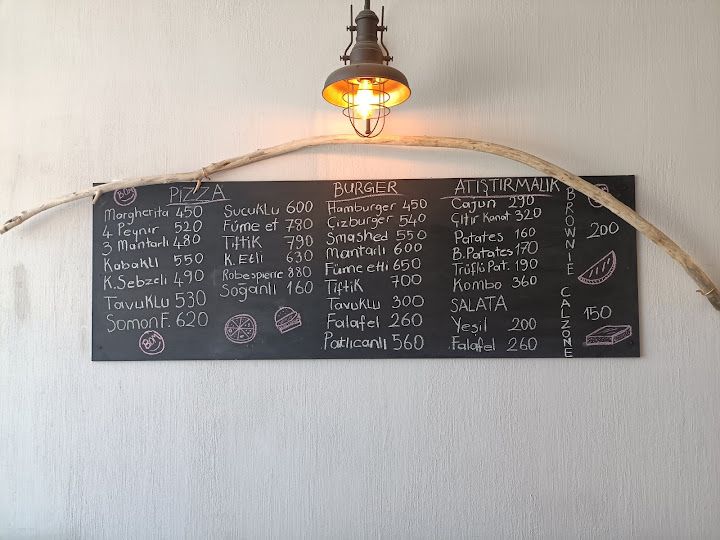 BOM
PİZZA
Margherita 450
4 Peynir 520
3 Mantarlı 480
Kabaklı 550
K.Sebzeli 490
Tavuklu 530
Somon F. 620
BOM
Sucuklu 600
Füme et 780
Tiftik 790
K.Etli 630
Robespierre 880
Soğanlı 160
BURGER
Hamburger 450
Çizburger 540
Smashed 550
Mantarlı 600
Füme etli 650
Tiftik 700
Tavuklu 300
Falafel 260
Patlıcanlı 560
ATIŞTIRMALIK
Cajun 290
Çıtır Kanat 320
Patates 160
B.Patates 170
Trüflü Pat. 190
Kombo 360
SALATA
Yeşil 200
Falafel 260
BROWNIE
200
CALZONE
150